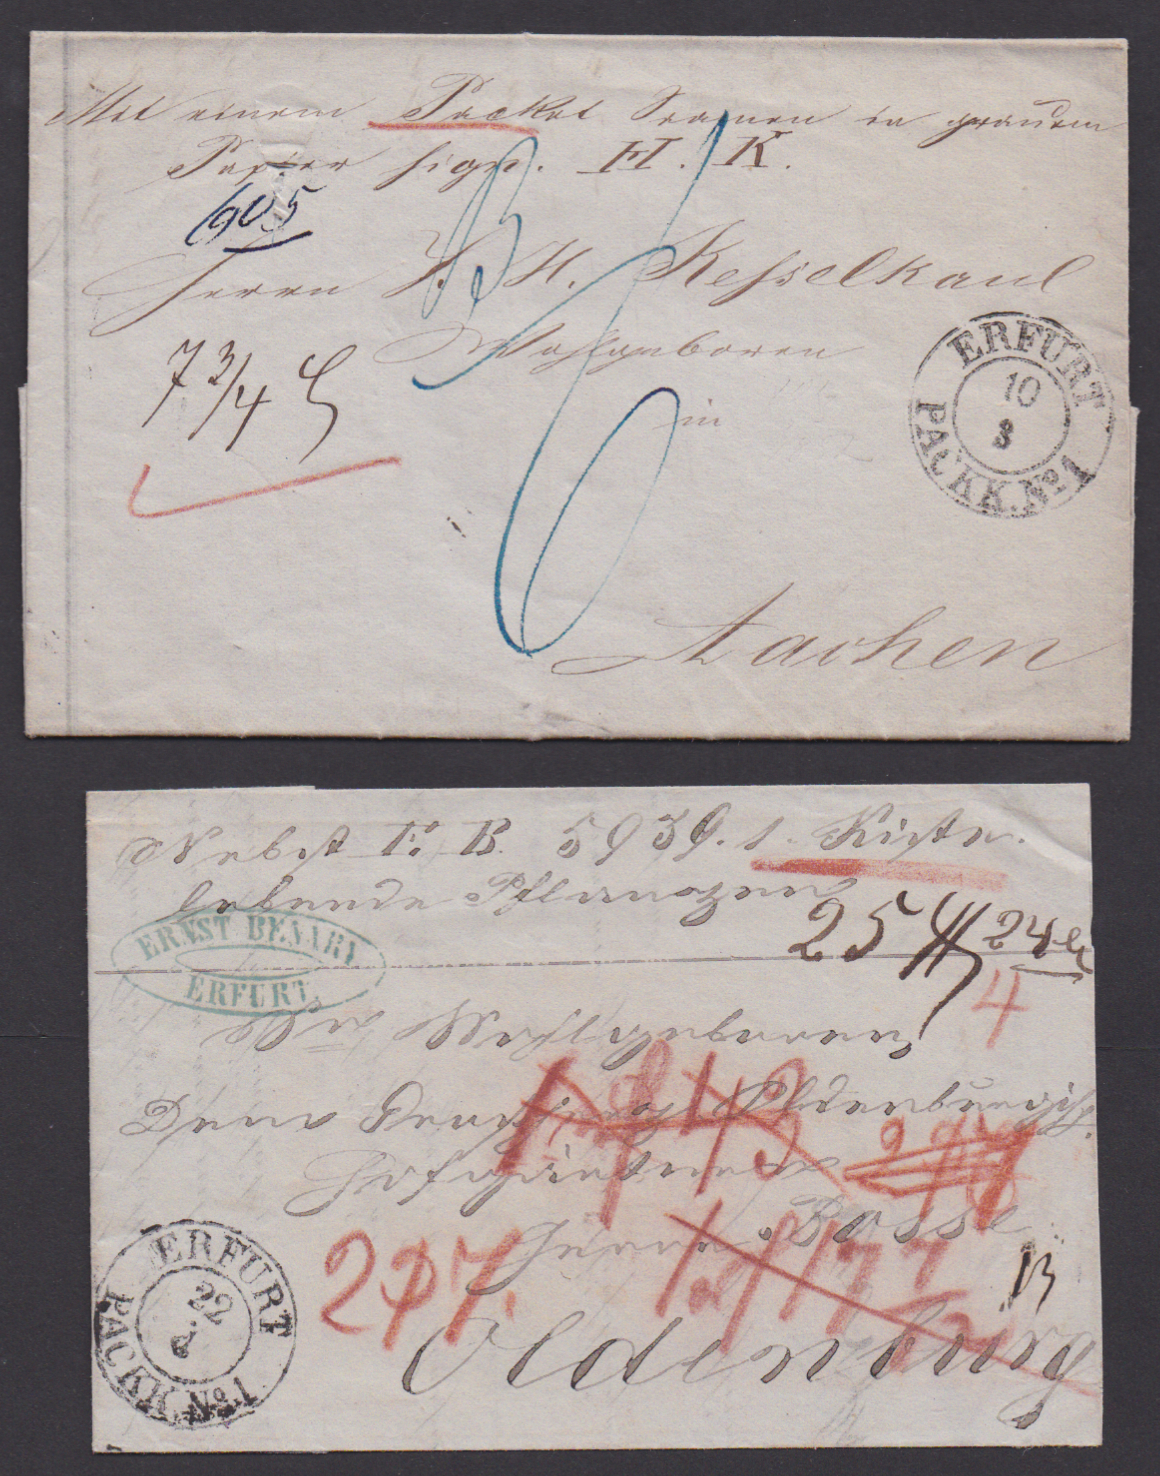 Mit einem Packet Saamen in grauem
Papier sign. H. K.
605
Herrn J. H. Kesselkaul
Wohlgeboren
7 3/4
in
6
ERFURT
10
3
PACKK. No. 1
Aachen
Nebst E. B. 5939. 1. Kiste
lebende Pflanzen
25 24
4
ERNST BENARY
ERFURT
Wohlgeboren
Dem Oldenburgisch.
Hofgärtner
Herrn Bosse
Oldenburg
ERFURT
22
PACKK. No. 1